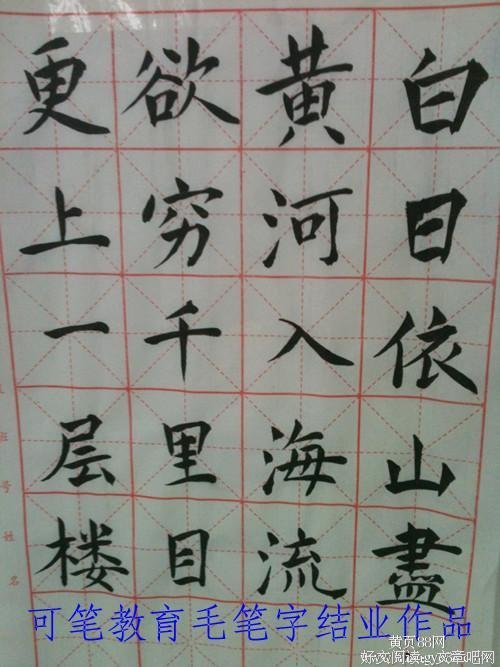 白日依山盡
黄河入海流
欲穷千里目
更上一层楼
班
号
姓
名
可笔教育毛笔字结业作品
黄页88网